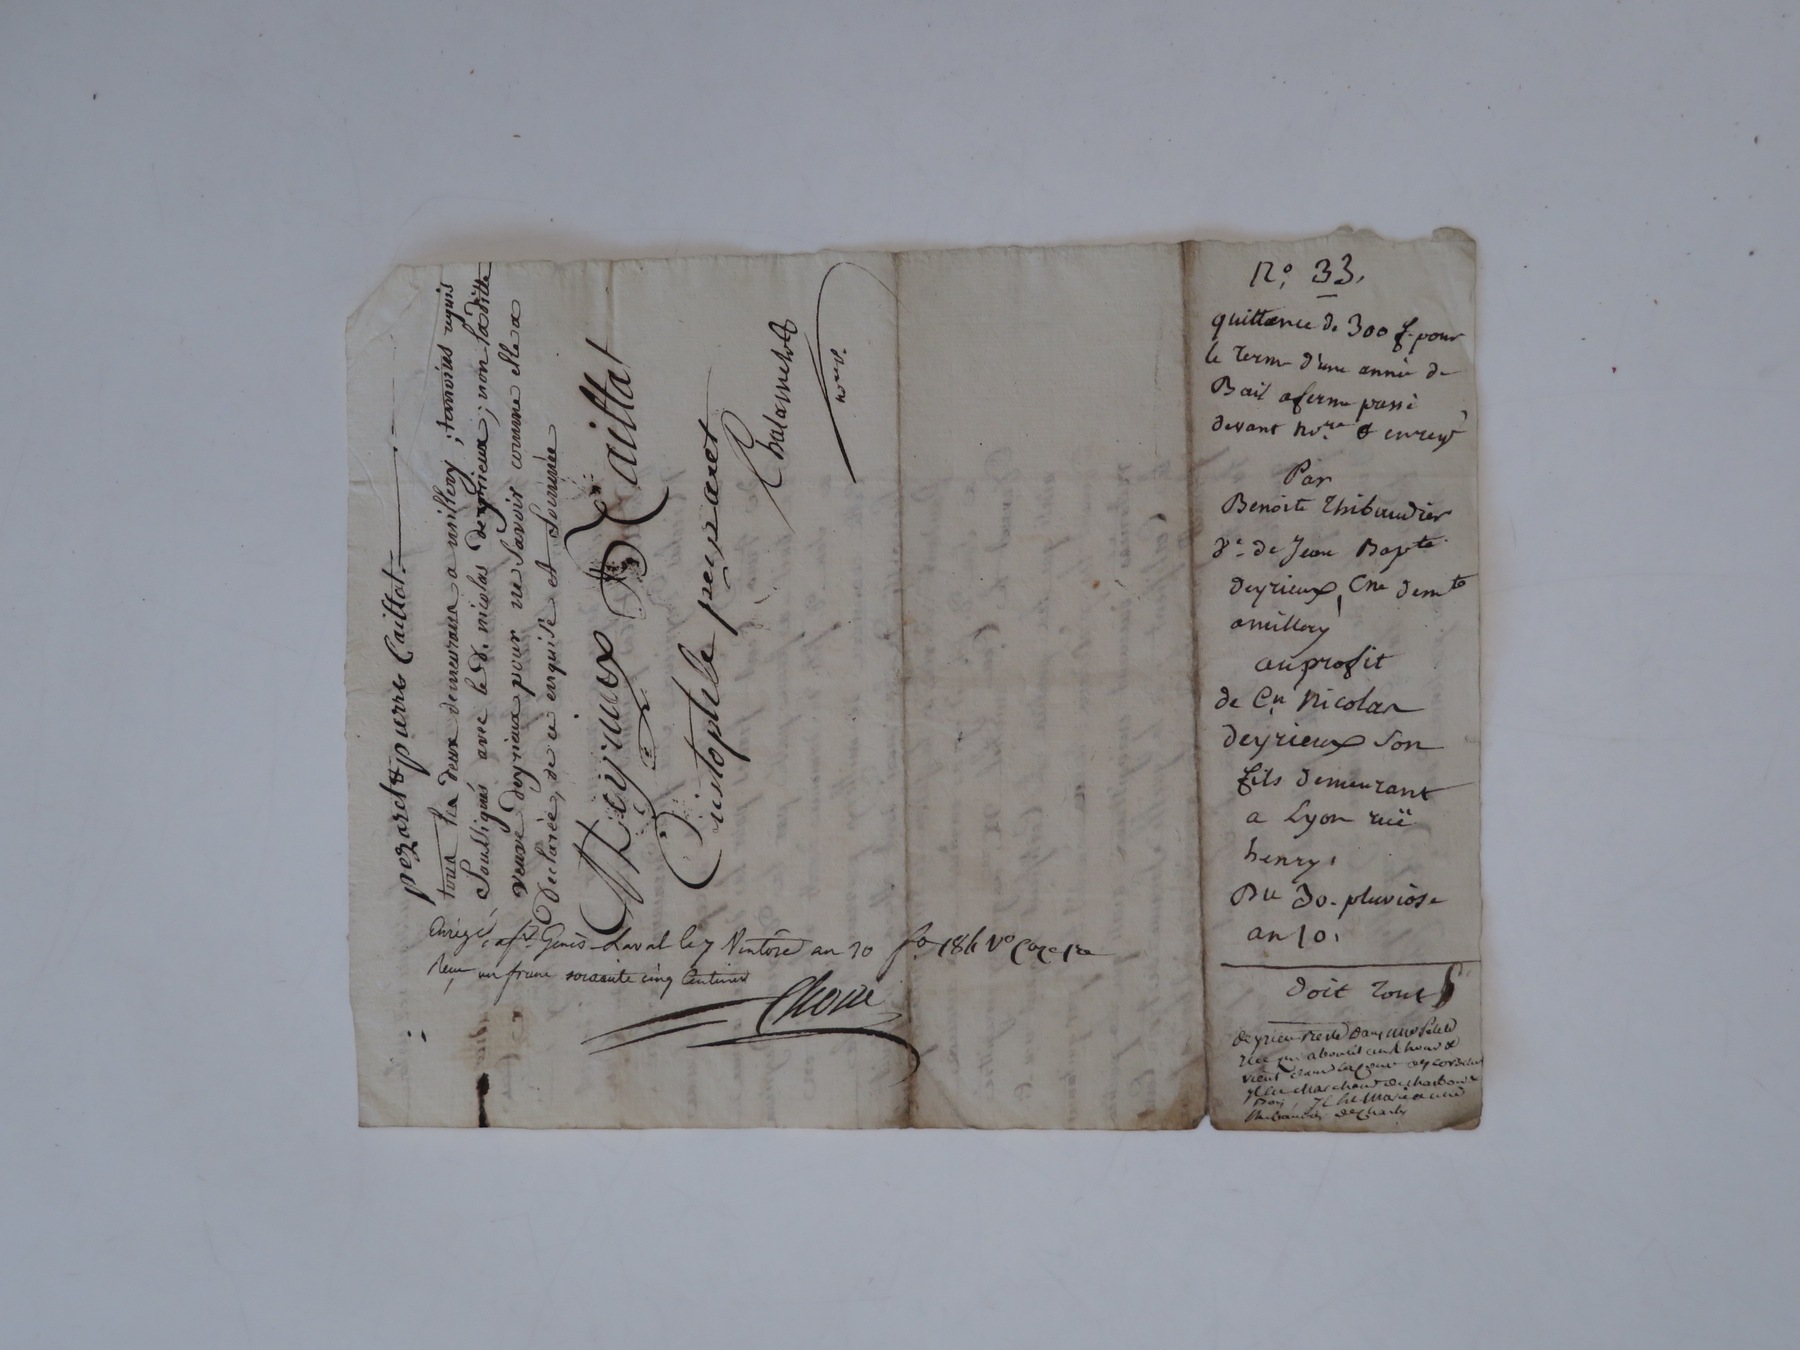 pezaret & pierre Caillat.
tous les deux demeurans a millery, temoins requis
soussignés avec le d. nicolas deyrieux, non la ditte
veuve deyrieux pour ne savoir comme elle a
declarée, de ce enquise et sommée
N Deyrieux P Caillat
Cristophle pezaret
nore.
Enregé, a st. Genis-Laval le 7 Ventose an 10 fo. 184 Vo Caze 1re
Reçu un franc soixante cinq Centimes
No. 33.
quittance de 300 f. pour
le terme d'une année de
Bail a ferme passé
devant nore & enregé
Par
Benoite Thibaudier
Ve de Jean Bapte
deyrieux, Cne demte
a millery
au profit
de Cn Nicolas
deyrieux son
fils demeurant
a Lyon ruë
henry,
Du 30. pluviose
an 10,
doit Tout
deyrieu reste Dans une petite
rue qui aboutit